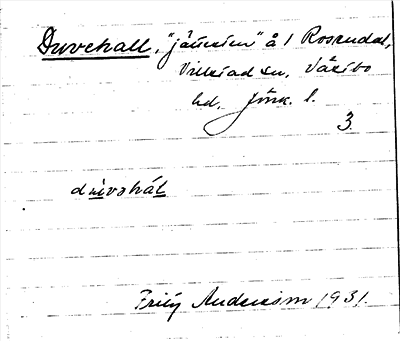 Duvehall, "jätteten" å 1 Rosendal,
Villstad sn, Västbo
hd, Jönk. l.
3.
dúvahál
Frity Anderson 1931.